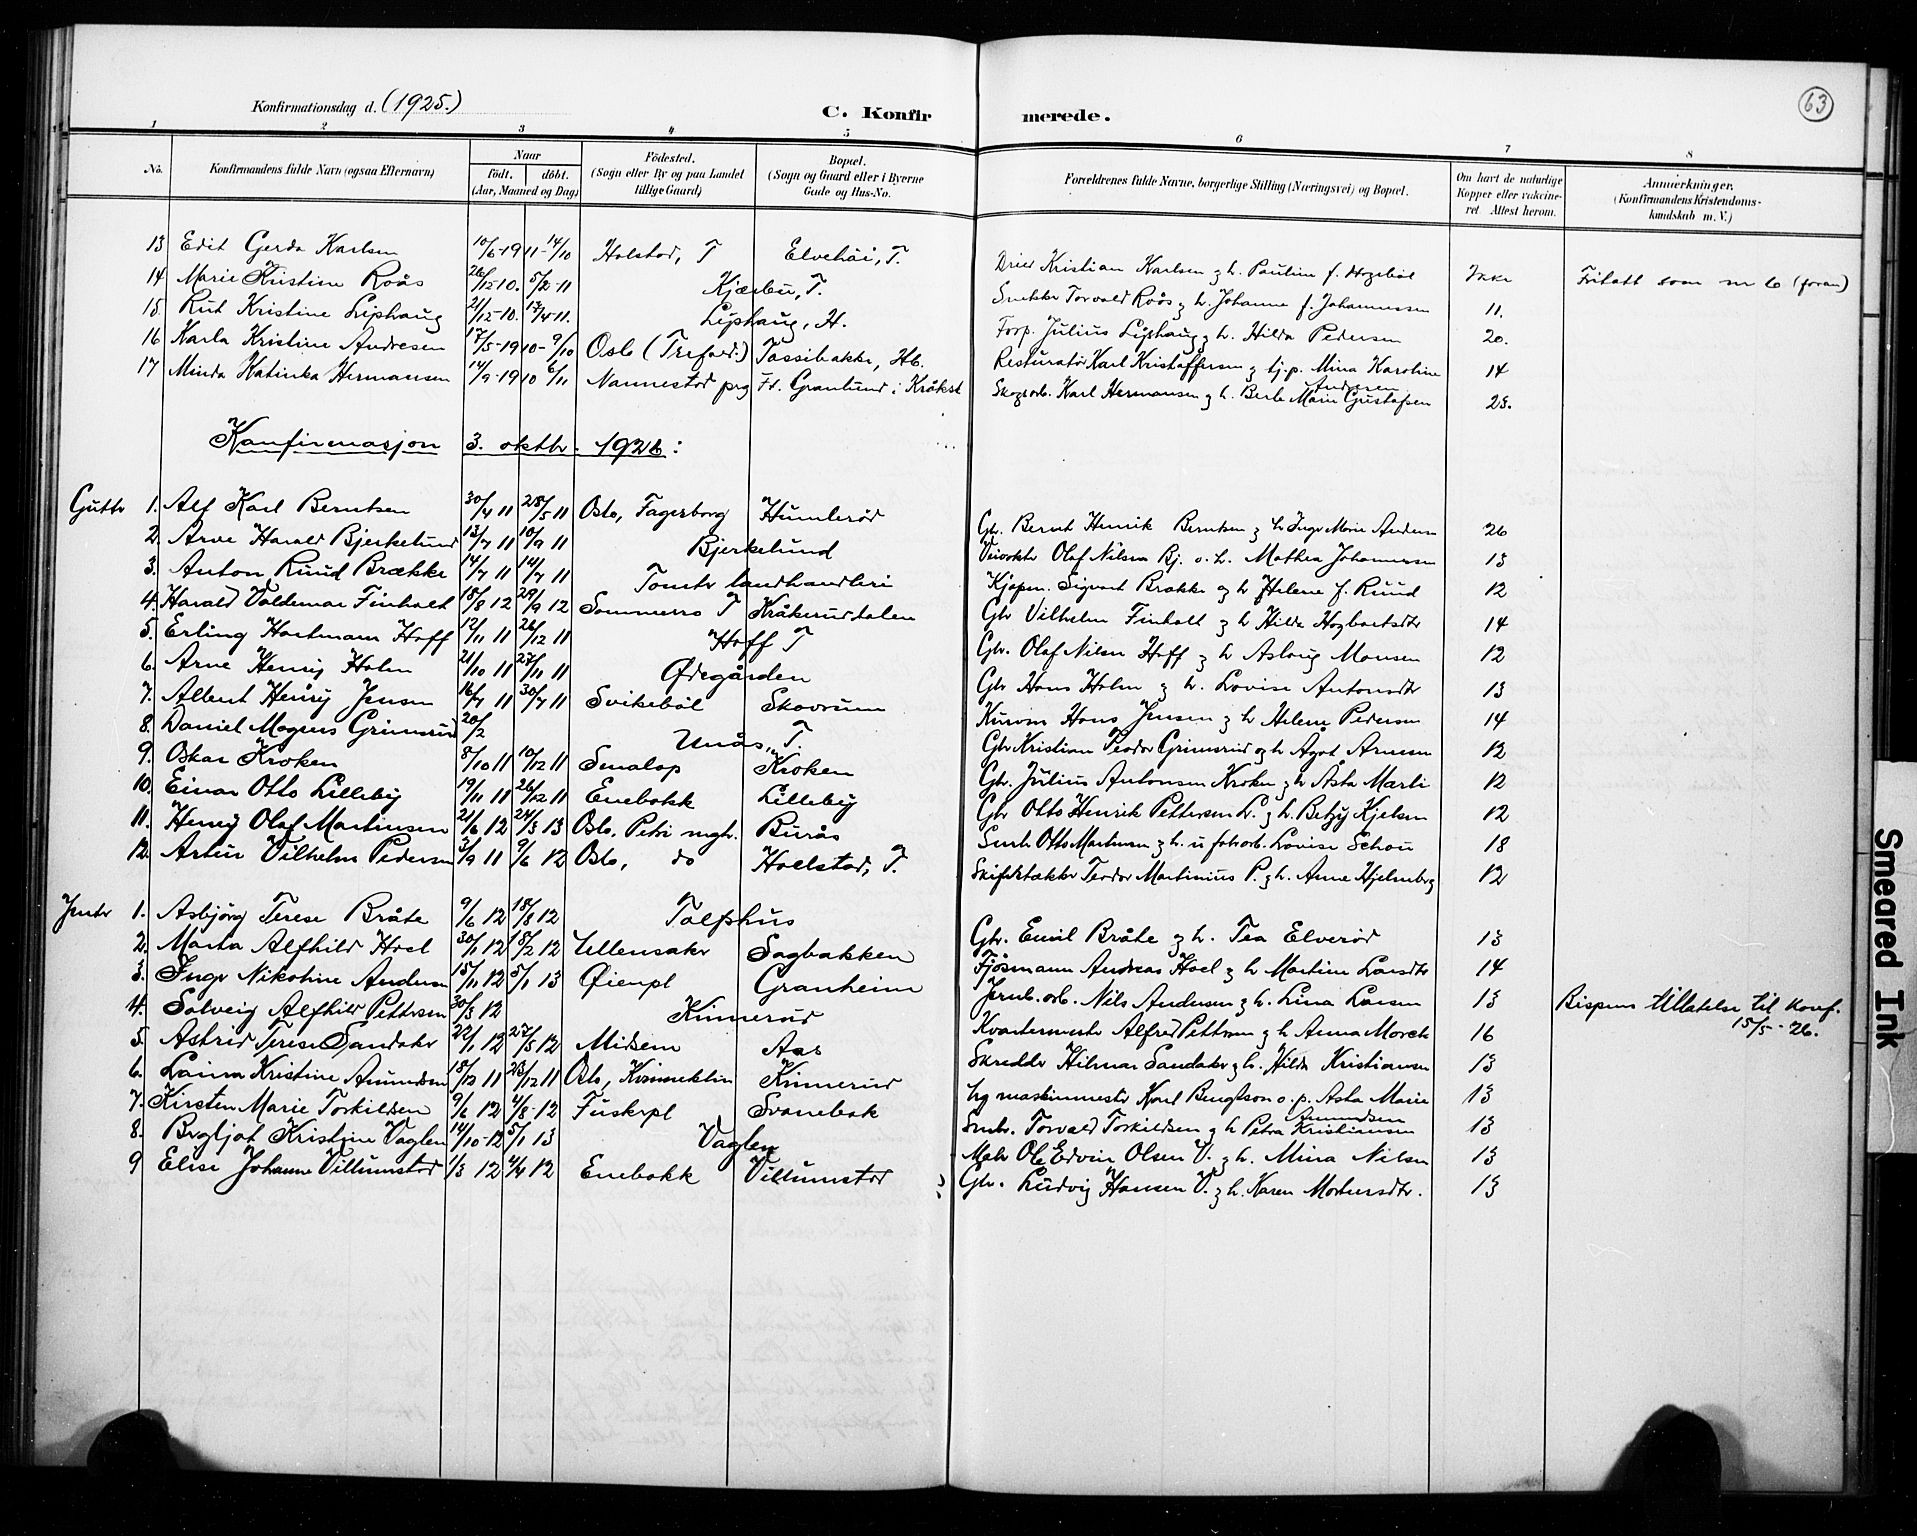 63
Konfirmationsdag d. (1925.)
C. Konfirmerede.
1 2 3 4 5 6 7 8
No. Konfirmandens fulde Navn (ogsaa Efternavn) Naar født. døbt. (Aar, Maaned og Dag) Fødested. (Sogn eller By og paa Landet tillige Gaard) Bopæl. (Sogn og Gaard eller i Byerne Gade og Hus-No. Forældrenes fulde Navne, borgerlige Stilling (Næringsvei) og Bopæl. Om havt de naturlige Kopper eller vakcineret. Attest herom. Anmerkninger. (Konfirmandens Kristendomskundskab m. V.)
13 Edit Gerda Karlsen 10/6-1911-14/10 Holstad, T Elvehöi, T. Kristian Karlsen g h. Pauline f. Hogsbøl Ikke Fritatt som nr 6 (foran)
14 Marie Kristine Roås 26/12-10. 5/2-11 Kjærbu, T. Snekker Torvald Roås g h. Johanne f. Johannessen 11.
15. Rut Kristine Lyshaug 21/12-10. 17/4-11. Lyshaug, H. Forp. Julius Lyshaug g h. Hilda Pedersen 20.
16 Karla Kristine Andresen 17/5-1910-9/10 Oslo (Trefold.) Tassebakke, Hb. Resturatør Karl Kristoffersen g tj.p. Mina Karoline Andresen 14
17 Minda Katinka Hermansen 14/9-1910 6/11 Nannestad prg Fr. Granlund i Kråkst Skogsarb. Karl Hermansen g h. Berte Marie Gustafsen 23.
Konfirmasjon 3. oktbr. 1926:
Gutter 1. Alf Karl Berntsen 30/4 11 28/5 11 Oslo, Fagerborg Humlerød Gbr. Bernt Henrik Berntsen g h Inga Marie Anders 26
2. Arve Harald Bjerkelund 13/7 11 10/9 11 Bjerkelund Veivokter Olaf Nilsen Bj. o. h. Mathea Johannessen 13
3. Anton Ruud Brække 14/4 11 14/7 11 Tomter landhandleri Kjøpm. Sigvart Brække og h Helene f. Ruud 12
4. Harald Valdemar Finholt 18/8 12 29/9 12 Sommerro T Kråkerudtalen Gbr Vilhelm Finholt g h Hilda Hogbartsdtr 14
5. Erling Hartmann Hoff 12/11 11 26/12 11 Hoff T Gbr. Olaf Nilsen Hoff g h Aslaug Monsen 12
6. Arne Henry Holm 21/10 11 27/11 11 Ødegården Gbr Hans Holm g h. Lovise Antonsdtr 13
7. Albert Henry Jensen 16/4 11 30/7 11 Svikebøl Skovrum Kurvm Hans Jensen g h Helene Pedersen 14
8. Daniel Magnus Grimsrud 20/2 Unås, T. Gbr Kristian Teodor Grimsrud og h Ågot Arnesen 12
9. Oskar Kroken 8/10 11 10/12 11 Smalop Kroken Gbr. Julius Antonsen Kroken g h Åsta Marti 12
10. Einar Otto Lilleby 19/11 11 26/12 11 Enebakk Lilleby Gbr Otto Henrik Pettersen L. g h. Betzy Kjelsen 12
11. Henry Olaf Martinsen 21/6 12 24/3 13 Oslo, Petri mgh. Burås Smbr Otto Martinsen g h. u fabarb. Lovise Schou 18
12. Artur Vilhelm Pedersen 3/9 11 9/6 12 Oslo, do Holstad, T. Skifertækker Teodor Martinius P. g h. Anna Hjelmberg 12
Jenter 1. Asbjörg Terese Bråte 9/6 12 18/8 12 Tolfshus Gbr. Emil Bråte og h. Tea Elverød 13
2. Marta Alfhild Hoel 30/1 12 18/2 12 Ullensaker Sagbakken Fjösmann Andreas Hoel g h Martine Larsdtr 14
3. Inga Nikoline Andersen 15/11 12 5/1 13 Øienpl Granheim Jernb.arb. Nils Andersen g h. Lina Larsen 13
4. Solveig Alfhild Pettersen 30/3 12 Kinnerud Kvartermester Alfred Pettersen g h Anna Morck 16 Bispens tillatelse til konf. 15/5-26.
5. Astrid Terese Sandaker 22/1 12 27/5 12 Midsem Aas Skredder Hilmar Sandaker g h. Hilda Kristiansen 13
6. Laura Kristine Amundsen 18/12 11 23/12 11 Oslo, Kvinneklin Kinnerud Ug maskinmester Karl Bengtson o. p. Asta Marie Amundsen 13
7. Kirsten Marie Torkildsen 9/6 12 4/8-12 Fuskepl Svanebæk Smbr. Torvald Torkildsen g h Petra Kristiansen 13
8. Bergljot Kristine Vaglen 14/10-12 5/1 13 Vaglen Maler Ole Edvin Olsen V. g h. Mina Nilsen 13
9 Elise Johanne Villumstad 1/3 12 4/4 12 Enebakk Villumstad Gbr. Ludvig Hansen V. g h. Karen Mortensdtr. 13
Smeared Ink